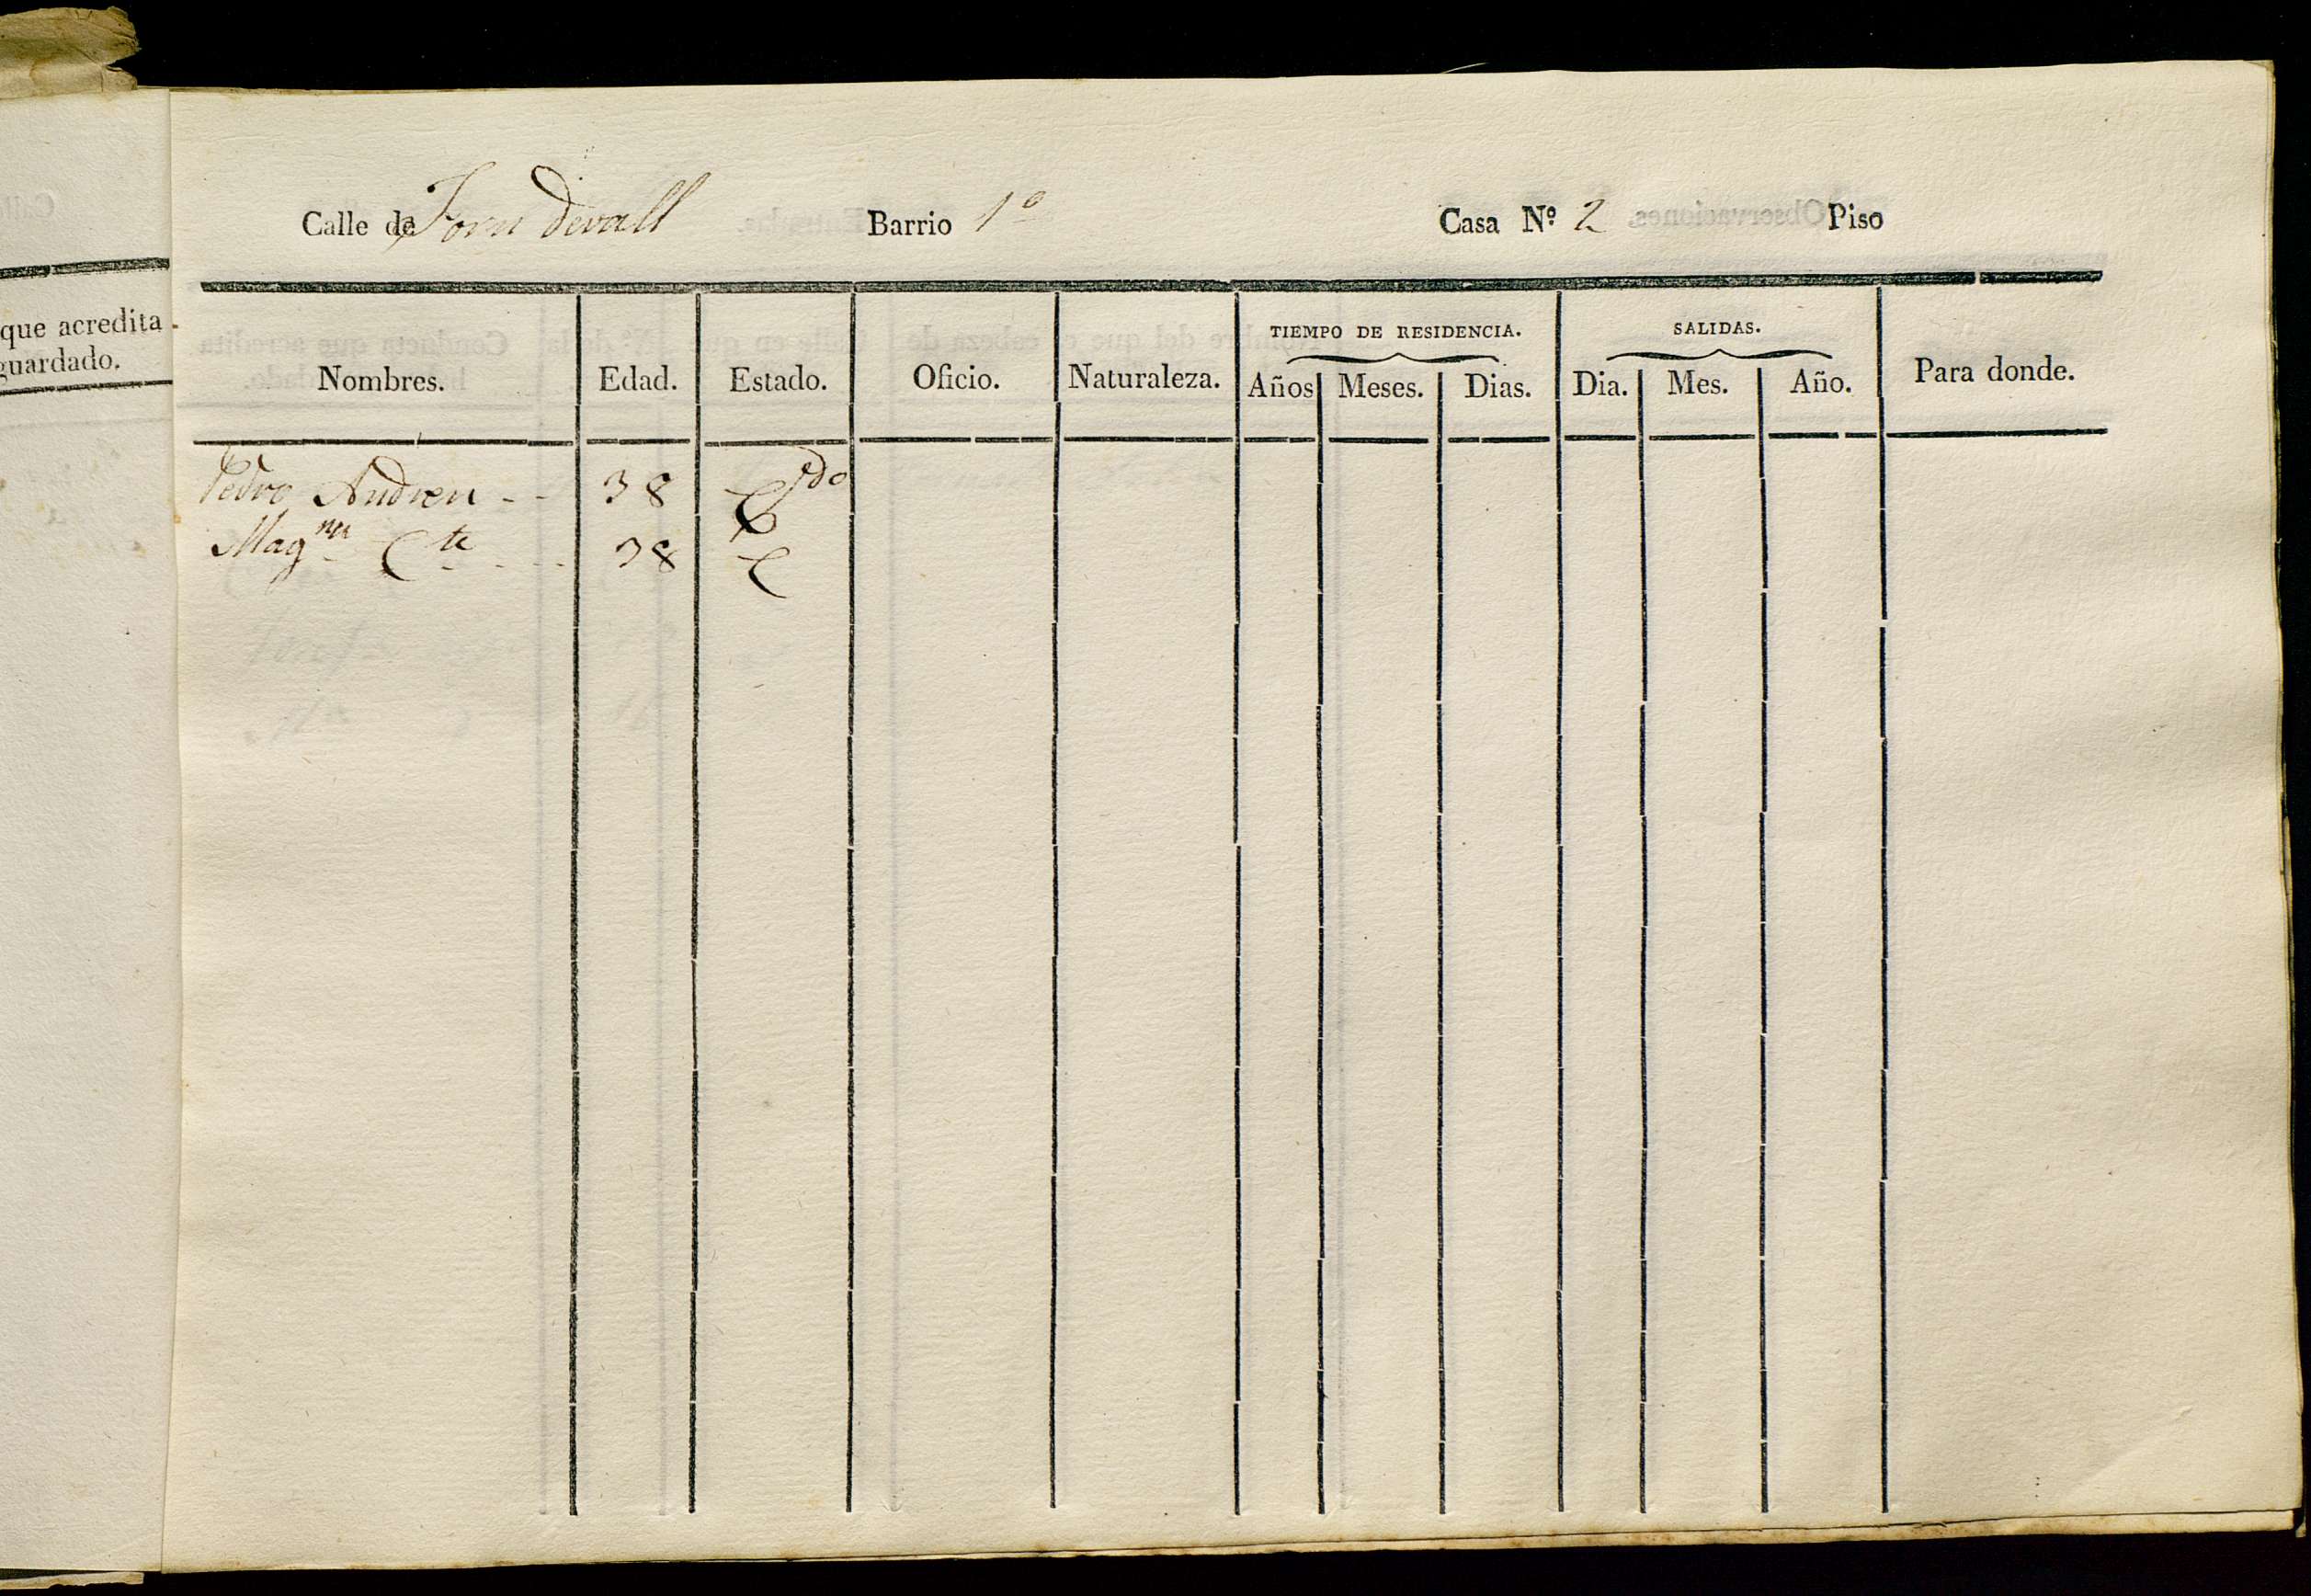 Calle de Forn devall Barrio 1º Casa Nº 2 Piso
que acredita
guardado.
TIEMPO DE RESIDENCIA. SALIDAS.
Nombres. Edad. Estado. Oficio. Naturaleza. Años Meses. Dias. Dia. Mes. Año. Para donde.
Pedro Andreu - - 38 C.do
Mag.na C.te - - - 38 C